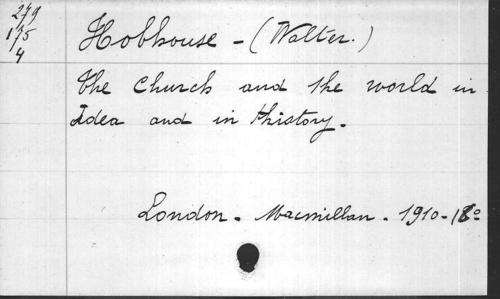 279
175
4
Hobhouse - (Walter.)
The Church and the world in
Idea and in History.
London - Macmillan - 1910 - 8°